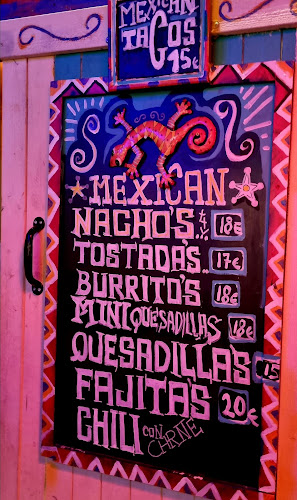 MEXICAN
TACOS
15€
MEXICAN
NACHO'S 18€
TOSTADA'S.. 17€
BURRITO'S 18€
MINI QUESADILLAS 18€
QUESADILLA'S 15
FAJITA'S 20€
CHILI CON CARNE